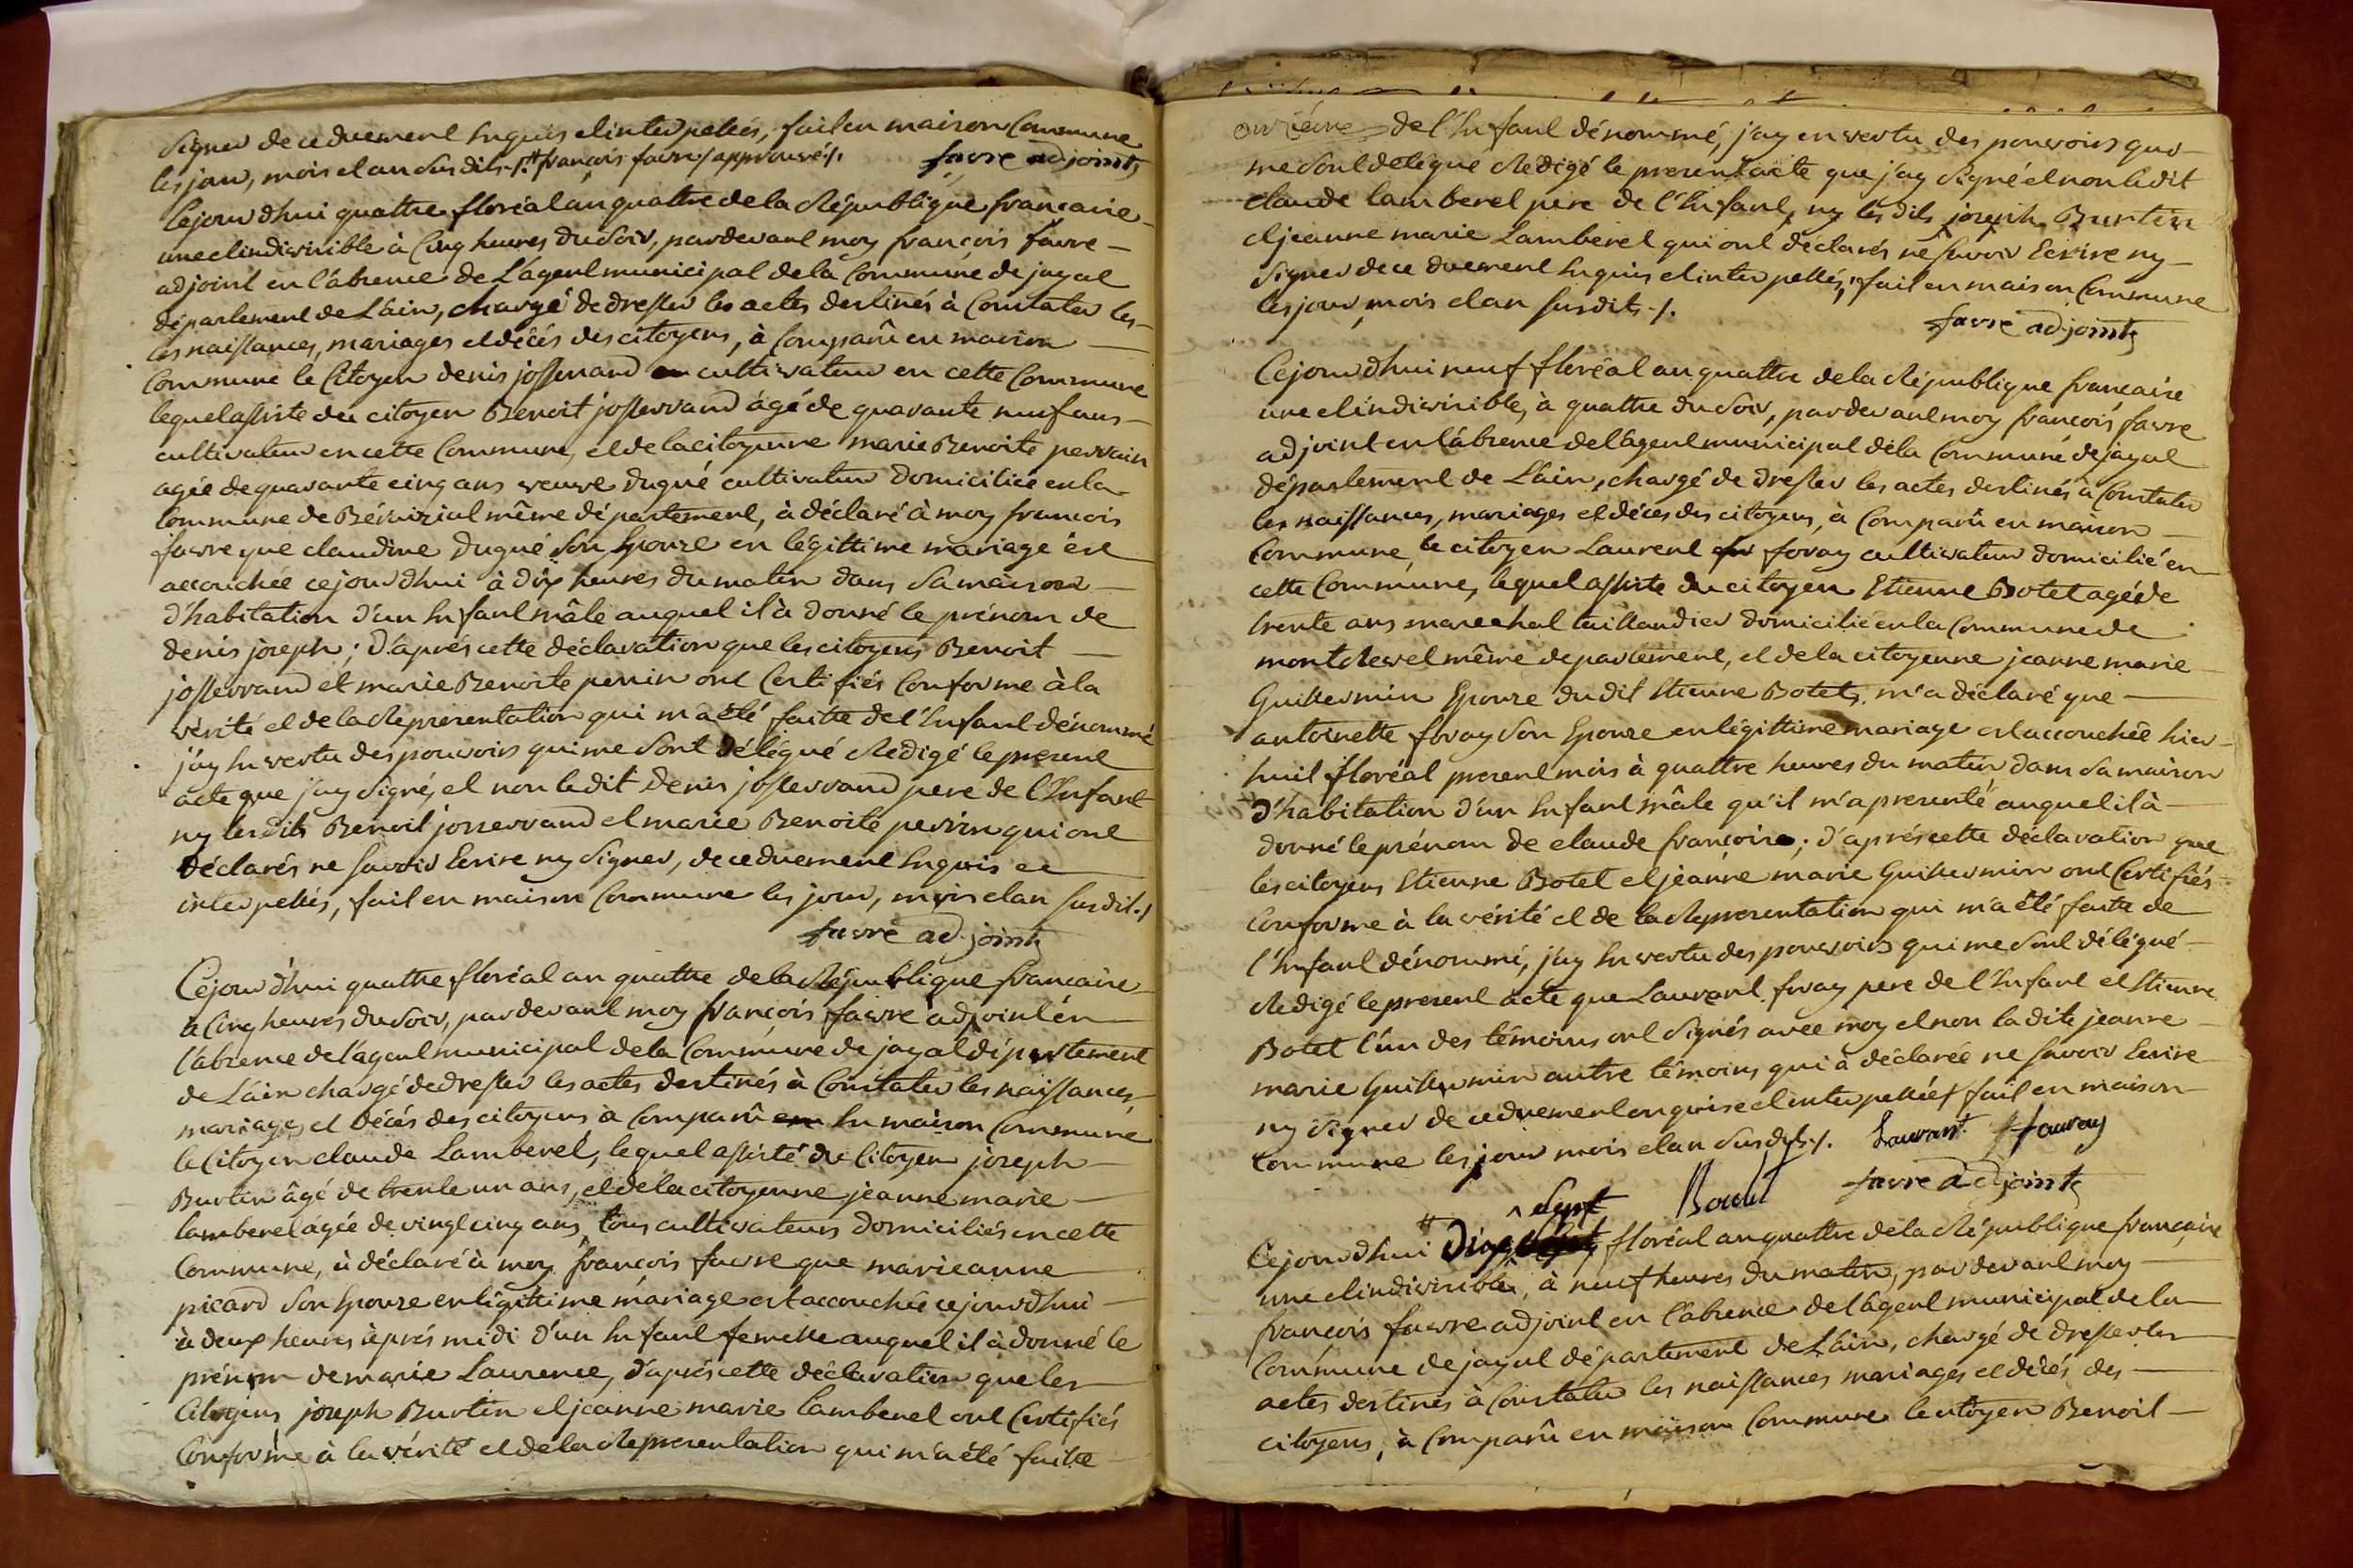 signer de ce duement Enquis et interpellés, fait en maison Commune
les jour, mois et an susdits ./. # françois favre ./ approuvé ./. favre adjoint
Cejourdhui quattre floréal an quattre de la République française
une et indivisible à Cinq heures du soir, pardevant moy françois favre
adjoint en l'absence de L'agent municipal de la Commune de jayat
département de L'ain, chargé de dresser les actes destinés à Constater les
les naissances, mariages et décés des citoyens, à Comparû en maison
Commune le Citoyen denis josserrand cultivateur en cette Commune
lequel assisté du citoyen Benoit josserrand âgé de quarante neuf ans
cultivateur en cette Commune, et de la citoyenne marie Benoite perrain
agée de quarante cinq ans veuve dugué cultivateur domiciliée en la
Commune de Béréiziat même département, à déclaré à moy françois
favre que claudine dugué son Epouze en légittime mariage est
accouchée cejourdhui à dix heures du matin dans sa maison
d'habitation d'un Enfant mâle auquel il à donné le prénom de
denis joseph ; d'aprés cette déclaration que les citoyens Benoit
josserrand et marie Benoite perrin ont Certifiés Conforme à la
vérité et de la Representation qui m'a été faitte de l'Enfant dénommé
j'ay En vertu des pouvoirs qui me sont délégué Redigé le present
acte que j'ay signé, et non ledit denis josserrand pere de l'Enfant
ny lesdits Benoit josserrand et marie Benoite perrin qui ont
déclarés ne savoir Ecrire ny signer, de ce duement Enquis et
interpellés, fait en maison Commune les jour, mois et an susdit ./
favre adjoint
Cejourd'hui quattre floréal an quattre de la République francaise
à Cinq heures du soir, pardevant moy françois favre adjoint en
l'absence de l'agent municipal de la Commune de jayat département
de L'ain chargé de dresser les actes destinés à Constater les naissances,
mariages et décés des citoyens à Comparû en En maison Commune
le Citoyen claude Lamberel, lequel assisté du Citoyen joseph
Burtin âgé de trente un ans, et de la citoyenne jeanne marie
lamberel agée de vingt cinq ans, tous cultivateurs domiciliés en cette
Commune, à déclaré à moy françois favre que marieanne
picard son Epouze en légittime mariage est accouchée cejourdhui
à deux heures aprés midi d'un Enfant femelle auquel il à donné le
prénom de marie Laurence, d'aprés cette déclaration que les
Citoyens joseph Burtin et jeanne marie lamberel ont Certifiés
Conforme à la vérité et de la Representation qui m'a été faitte
de l'Enfant dénommé, j'ay en vertu des pouvoirs qui
me sont delégué Redigé le present acte que j'ay signé et non ledit
claude lamberel pere de l'Enfant, ny les dits joseph Burtin
et jeanne marie Lamberel qui ont déclarés ne savoir Ecrire ny
signer de ce duement Enquis et interpellés, fait en maison Commune
les jour, mois et an susdits ./.
favre adjoint
Cejourdhui neuf floréal an quattre de la République francaise
une et indivisible, à quattre du soir, pardevant moy françois favre
adjoint en l'absence de l'agent municipal de la Commune de jayat
département de L'ain, chargé de dresser les actes destinés à Constater
les naissances, mariages et décés des citoyens, à Comparû en maison
Commune, le citoyen Laurent foray cultivateur domicilié en
cette Commune, lequel assisté du citoyen Etienne Botet agé de
trente ans marechal taillandier domicilié en la Commune de
montrevel même departement, et de la citoyenne jeanne marie
Guillermin Epouze du dit Etienne Botet, m'a déclaré que
antoinette foray son Epouze en légittime mariage est accouchée hier
huit floréal present mois à quattre heures du matin dans sa maison
d'habitation d'un Enfant mâle qu'il m'a presenté auquel il à
donné le prénom de claude françois ; d'aprés cette déclaration que
les citoyens Etienne Botet et jeanne marie Guillermin ont Certifiés
Conforme à la vérité et de la Representation qui m'a été faite de
l'Enfant dénommé, j'ay En vertu des pouvoirs qui me sont délégué
Redigé le present acte que Laurant foray pere de l'Enfant et Etienne
Botet l'un des témoins ont signés avec moy et non la dite jeanne
marie Guillermin autre témoins qui à déclarée ne savoir Ecrire
ny signer de ce duement enquise et interpellée, fait en maison
Commune les jour mois et an susdits ./. Laurant fauray
favre adjoint
^ sept
Cejourdhui # Dix floréal an quattre de la République française
une et indivisible, à neuf heures du matin, pardevant moy
françois favre adjoint en l'absence de l'agent municipal de la
Commune de jayat département de L'ain, chargé de dresser les
actes destinés à Constater les naissances mariages et décés des
citoyens, à Comparû en maison Commune le citoyen Benoit